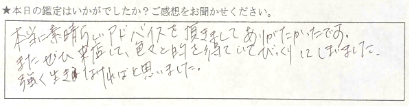 ★本日の鑑定はいかがでしたか？ご感想をお聞かせください。
本当に素晴らしいアドバイスを頂きましてありがたかったです。
またぜひ来店して、色々と的を得ていてびっくりしてしまいました。
強く生きなければと思いました。